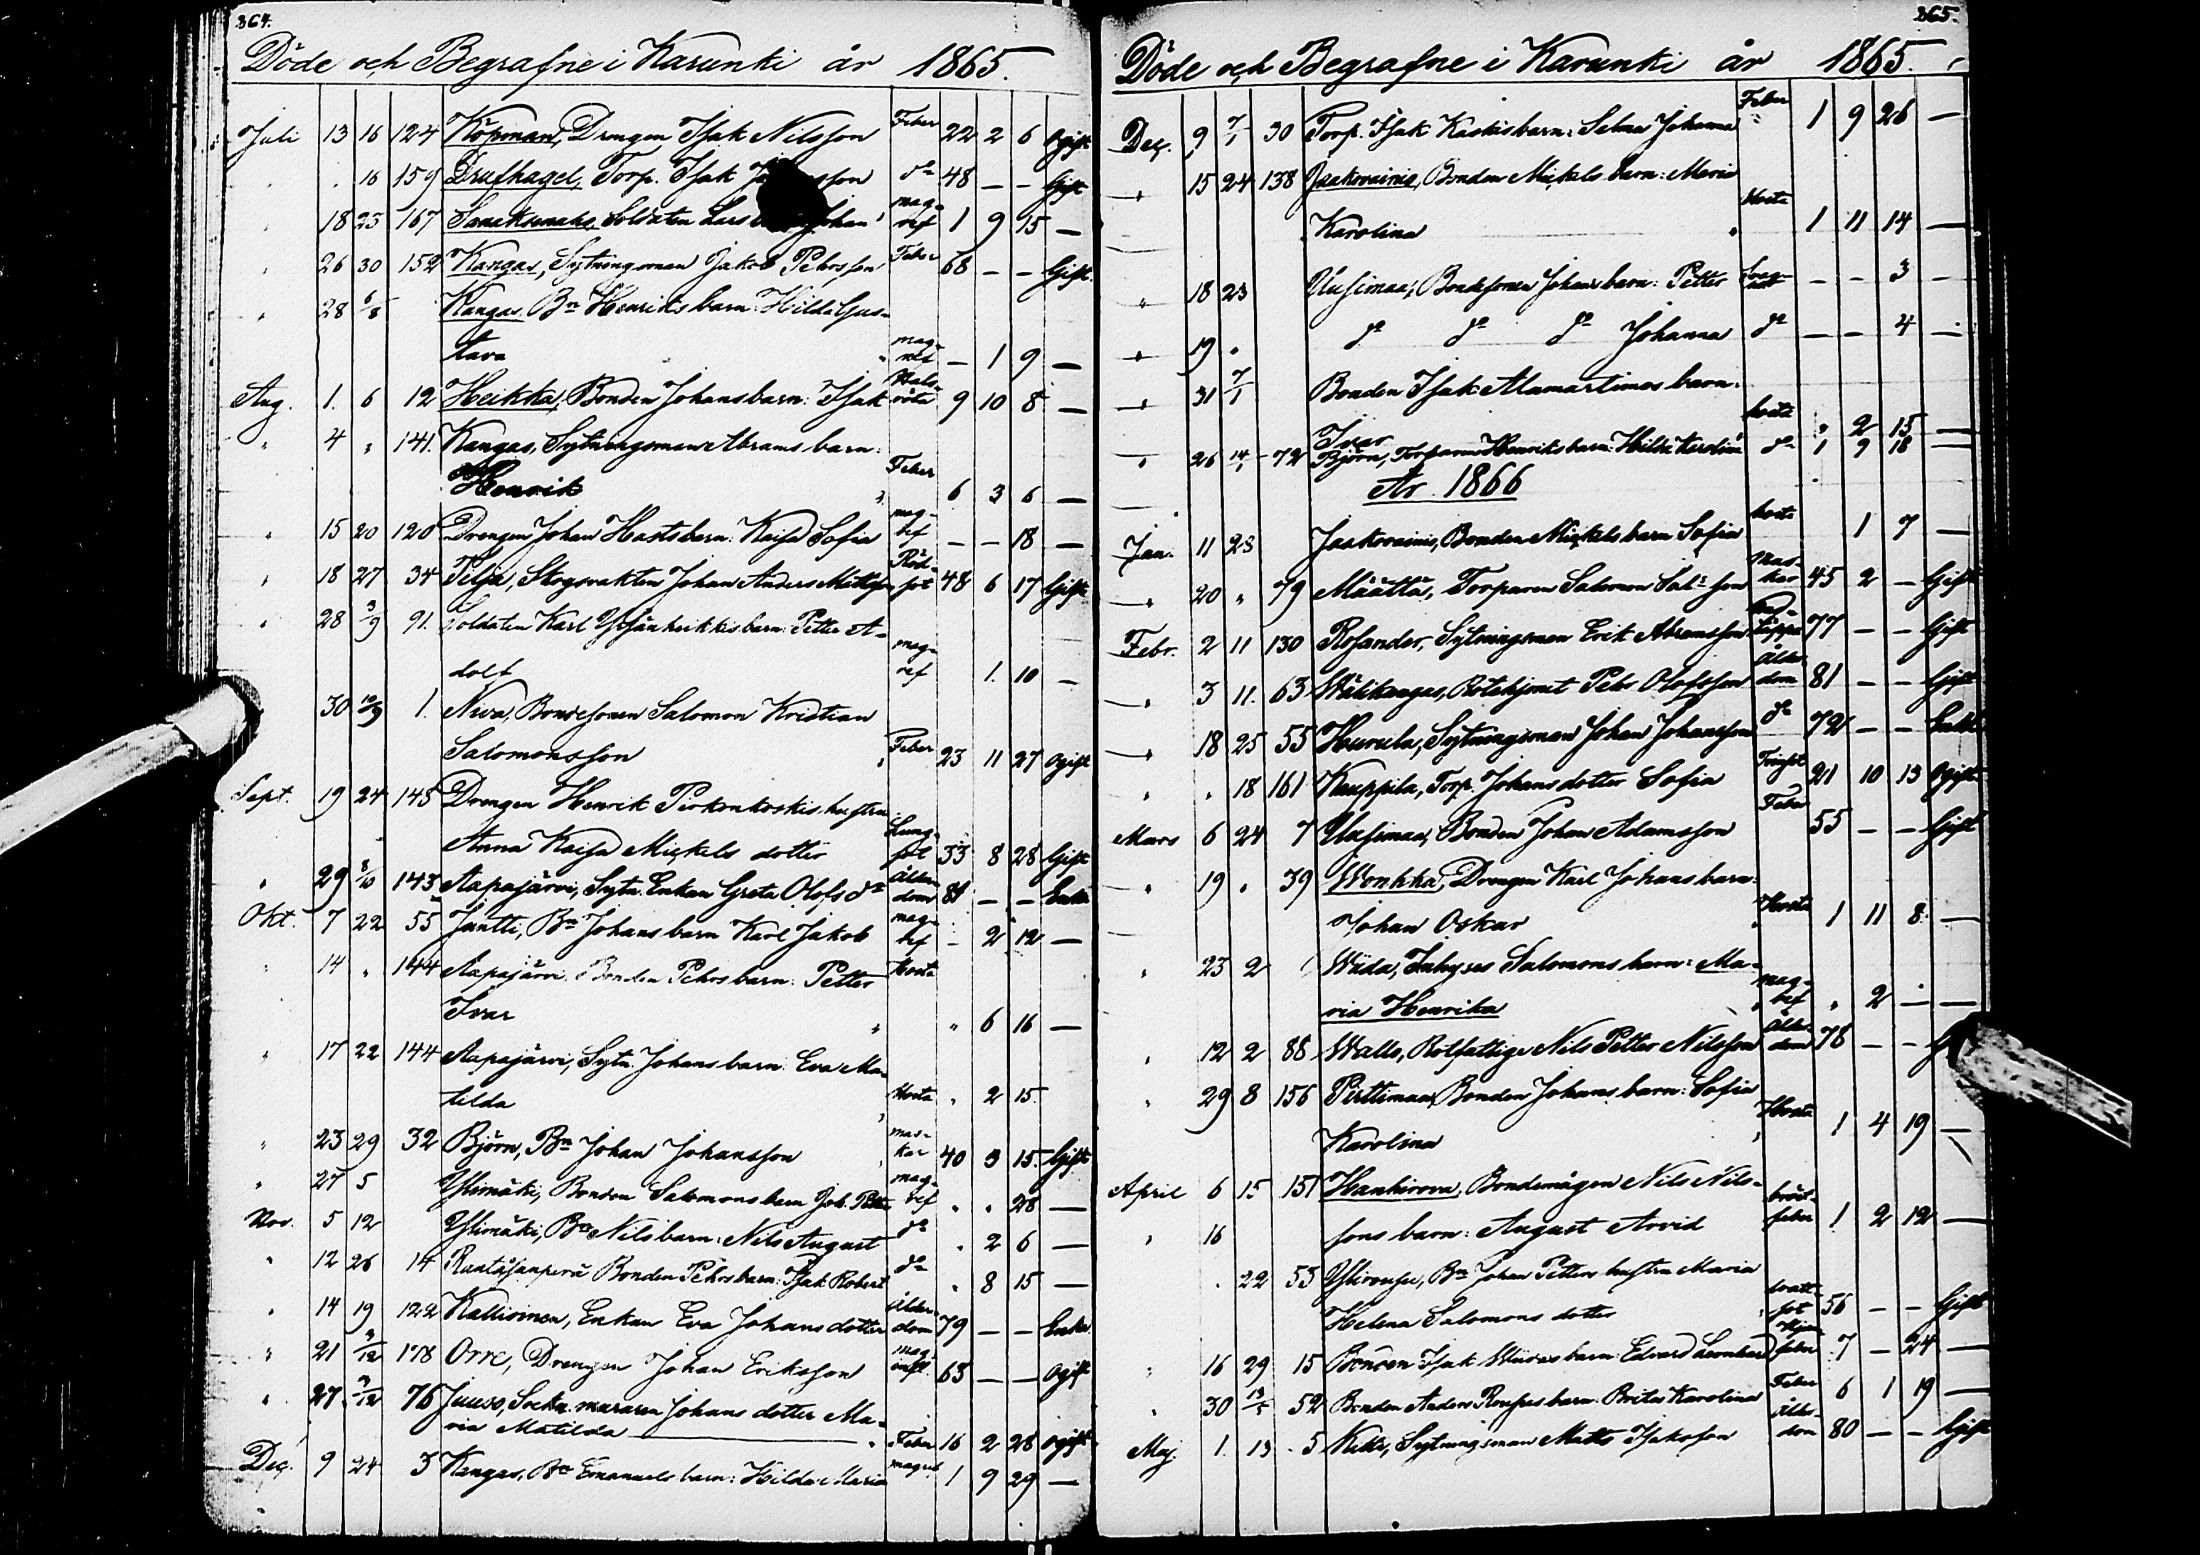 364.
Döde och Begrafne i Karunki år 1865.
Juli 13 16 124 Köpman, Drengen Isak Nilsson Feber 22 2 6 ogift
" 16 159 Torp. Isak dº 48 — — Gift
" 18 23 167 Soldaten Lars Johan magref 1 9 15 —
" 26 30 152 Kangas, Sytningsman Jakob Pehrsson Feber 68 — — Gift.
" 28 6/8 Kangas Bn Henriks barn: Hilda Gus-
tava magref — 1 9 —
Aug. 1. 6 12 Heikka, Bonden Johans barn: Isak Halsröta 9 10 8 —
" 4 " 141. Kangas, Sytningsman Abrams barn:
Henrik Feber 6 3 6 —
" 15 20 120 Drengen Johan Hasts barn: Kaisa Sofia magref — — 18 —
" 18 27 34 Skogvakten Johan Anders Mattsson Rödsot 48 6 17 Gift
" 28 3/9 91. Soldaten Karl barn: Petter A-
dolf magref 1. 10 —
30 10/9 1. Niva, Bondesonen Salomon Kristian
Salomonsson Feber 23 11 27 ogift
Sept. 19 24 145 Drengen Henrik Pirkonkoskis hustru
Anna Kaisa Mickels dotter Lungsot 33 8 28 Gift
" 29 8/10 143 Aapajärvi, Sytn. Enkan Greta Olofs dr Ålderdom 81 — — Enka
Okt. 7 22 55 Jantti, Bn Johans barn Karl Jakob magref — 2 12 —
" 14 " 144 Aapajärvi Bonden Pehrs barn: Petter Hosta
Ivar " " 6 16 —
" 17 22 144 Aapajärvi, Sytn. Johans barn Eva Ma-
tilda Hosta " 2 15.
" 23 29 32 Björn, Bn Johan Johansson maskar 40 3 15. Gift
" 27 5 Ylimäki, Bonden Salomons barn Joh. Petter magref " " 28 —
Nov. 5 12 Ylimäki, Bn Nils barn: Nils August dº " 2 6 —
" 12 26 14 Bonden Pehrs barn: Isak Robert dº " 8 15 —
" 14 19 122 Kallioinen, Enkan Eva Johans dotter Ålderdom 79 — — Enka
" 21 3/12 178 Orre, Drengen Johan Eriksson 63 — — ogift
" 27 3/12 76 Juuso, Johans dotter Ma-
ria Matilda Feber 16 2 28 ogift
Dec. 9 24 3 Kangas, Bn Emanuels barn: Hilda Maria magref 1 9 29 —
365.
Döde och Begrafne i Karunki år 1865.
Dec. 9 7/1 30 Torp. Isak Kaskis barn: Selma Johanna Feber 1 9 26 —
" 15 24 138 Jaakovainio, Bonden Mickels barn: Maria
Karolina Hosta 1 11 14 —
" 18 23 Uusimaa, Bondesonen Johans barn: Petter Svaghet — — 3 —
" 19 " dº dº dº Johanna dº — — 4 —
" 31 7/1 Bonden Isak Alamartimos barn:
Ivar hosta " 2 15 —
" 26 14/1 72 Björn, Torparen Henriks barn: Hilda Karolina dº 1 9 18 —
År 1866
Jan. 11 23 Jaakovainio, Bonden Mickels barn Sofia hosta 1 7 —
" 20 " 79 Määttä, Torparen Salomon Sal:sson maskar 45 2 — Gift
Febr. 2 11 130 Rosander, Sytningsman Erik Abramsson 77 — — Gift
" 3 11. 63 Rotehjonet Pehr Olofsson Ålderdom 81 — — Gift
" 18 25 55 Hurula, Sytningsman Johan Johansson dº 72 — —
" " 18 161 Kauppila, Torp. Johans dotter Sofia 21 10 13 Ogift
Mars 6 24 7 Uusimaa, Bonden Johan Adamsson Feber 55 — — Gift
" 19 " 39 Wonkka, Drengen Karl Johans barn:
Johan Oskar Hosta 1 11 8 —
" 23 2 Inhyses Salomons barn: Ma-
ria Henrika magref " 2 — —
" 12 2 88 Nils Petter Nilsson Ålderdom 78 — —
" 29 8 156 Pirttimaa, Bonden Johans barn: Sofia
Karolina Hosta 1 4 19 —
April 6 15 151 Bondemågen Nils Nils-
" 16 sons barn: August Arvid bröstfeber 1 2 12 —
" 22 53 Bn Johan Petters hustru Maria
Helena Salomons dotter vattsot 56 — — Gift
" 16 29 15 Bonden Isak barn: Edvard Leonhard feber 7 — 24 —
" 30 13/5 52 Bonden Anders barn: Brita Karolina Feber 6 1 19 —
Maj 1. 13 5 Sytningsman Matts Isaksson Ålderdom 80 — — Gift